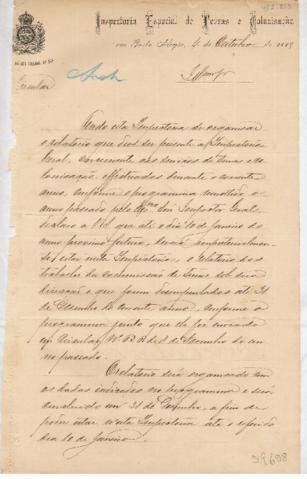 Inspectoria Especial de Terras e Colonisação
em Porto Alegre, 4 de Outubro de 188
Circular
Tendo esta Inspectoria de organisar
o relatorio que deve ser presente a Inspectoria
Geral, concernente aos serviços de terras e co-
lonisação, effectuados durante o corrente
anno, conforme o programma
anno passado pelo Inspector Geral,
a V.S. que até o dia 10 de Janeiro do
anno proximo futuro, deverá impreterivelmen-
te estar nesta Inspectoria, o relatorio dos
trabalhos da commissão de terras sob sua
direcção e que forem desempenhados até 31
de Dezembro do corrente anno, conforme o
programma junto que lhe foi enviado
em Circular Nº de de Dezembro do an-
no passado.
O relatorio será organisado com
os dados indicados no programma e será
em 31 de Dezembro, a fim de
poder estar nesta Inspectoria até o referido
dia 10 de Janeiro.